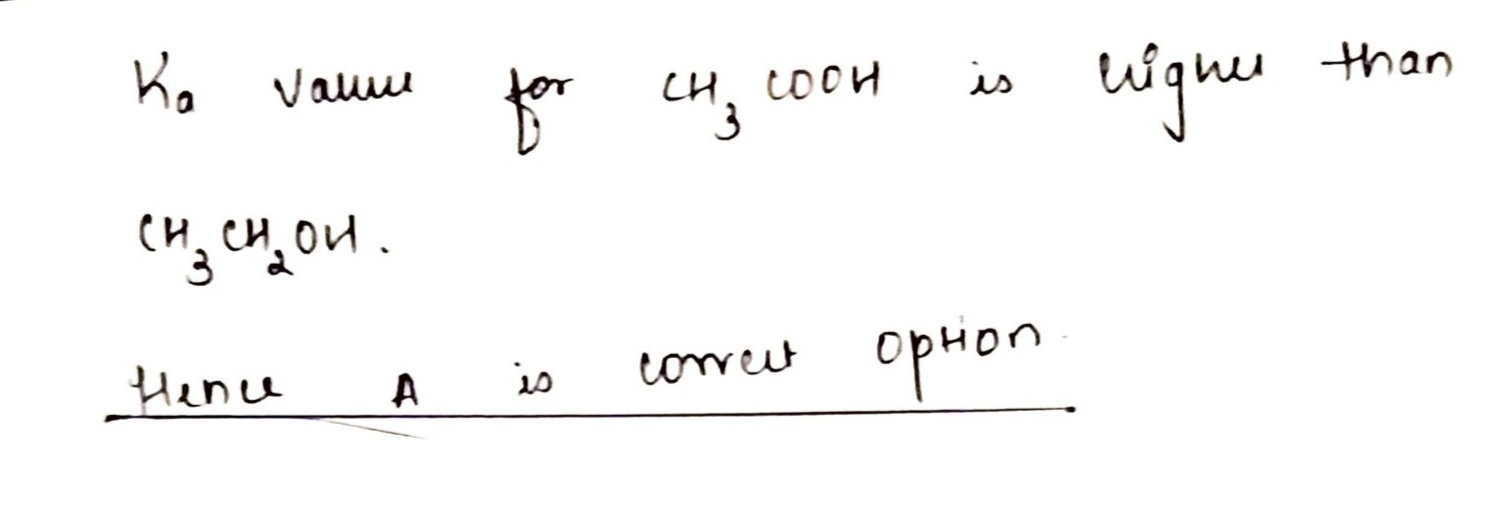 Ka value for CH3COOH is higher than
CH3CH2OH.
Hence A is correct option.